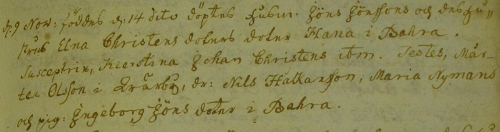 d: 9 Nov: föddes d: 14 dito döptes husm: Jöns Jönssons och dess hu-
strus Elna Christens doters doter Hana i Bahra.
Susceptrix, Kierstina Johan Christens ibm. Testes, Mår-
ten Olsson i Qvärby, dr: Nils Hallanson, Maria Nymans
och pig: Engeborg Jöns doter i Bahra.